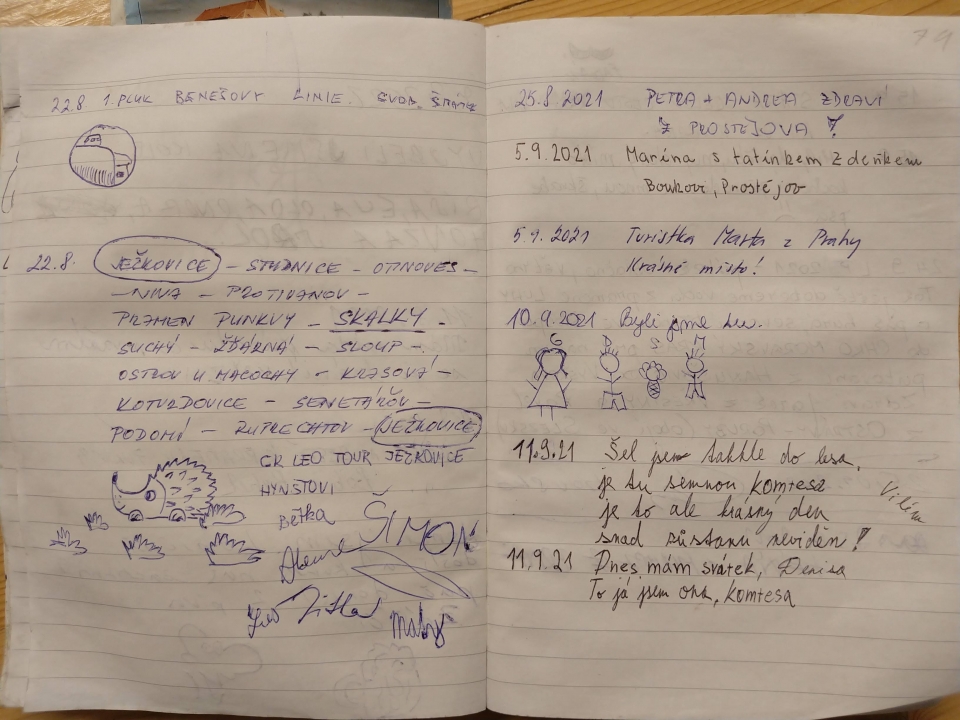 22.8. 1. PLUK BENEŠOVY LINIE.
22.8. JEŽKOVICE – STUDNICE – OTINOVES –
– NIVA – PROTIVANOV –
PRAMEN PUNKVY – SKALKY –
SUCHÝ – ŽĎÁRNÁ – SLOUP –
OSTROV U MACOCHY – KRASOVÁ –
KOTVRDOVICE – SENETÁŘOV –
PODOMÍ – RUPRECHTOV – JEŽKOVICE
CK LEO TOUR JEŽKOVICE
HYNŠTOVI
Bětka ŠIMON
Leo Jitka
Matěj
79
25.8.2021 PETRA + ANDREA ZDRAVÍ
Z PROSTĚJOVA!
5.9.2021 Marina s tatínkem Zdeňkem
Boukovi, Prostějov
5.9.2021 Turistka Marta z Prahy
Krásné místo!
10.9.2021 Byli jsme tu.
11.9.21 Šel jsem takhle do lesa,
je tu semnou komtesa
je to ale krásný den
snad zůstanu neviděn! Vilém
11.9.21 Dnes mám svátek, Denisa
To já jsem ona, komtesa